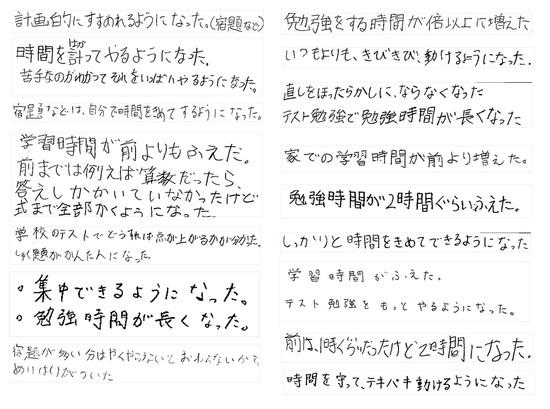 計画的にすすめれるようになった。(宿題など)
時間を計ってやるようになった。
苦手なのがわかってそれをいっぱいやるようになった。
宿題などは、自分で時間をきめてするようになった。
学習時間が前よりもふえた。
前までは例えば算数だったら、
答えしかかいていなかったけど
式まで全部かくようになった。
学校のテストでどうすれば点が上がるかが分かった。
しゅく題がかんたんになった。
・集中できるようになった。
・勉強時間が長くなった。
宿題が多い分はやくやらないとおわらないから
めりはりがついた
勉強をする時間が倍以上に増えた
いつもよりも、きびきび、動けるようになった。
直しをほったらかしに、ならなくなった
テスト勉強で勉強時間が長くなった
家での学習時間が前より増えた。
勉強時間が2時間ぐらいふえた。
しっかりと時間をきめてできるようになった
学習時間がふえた。
テスト勉強をもっとやるようになった。
前は、1時間くらいだったけど2時間になった。
時間を守って、テキパキ動けるようになった